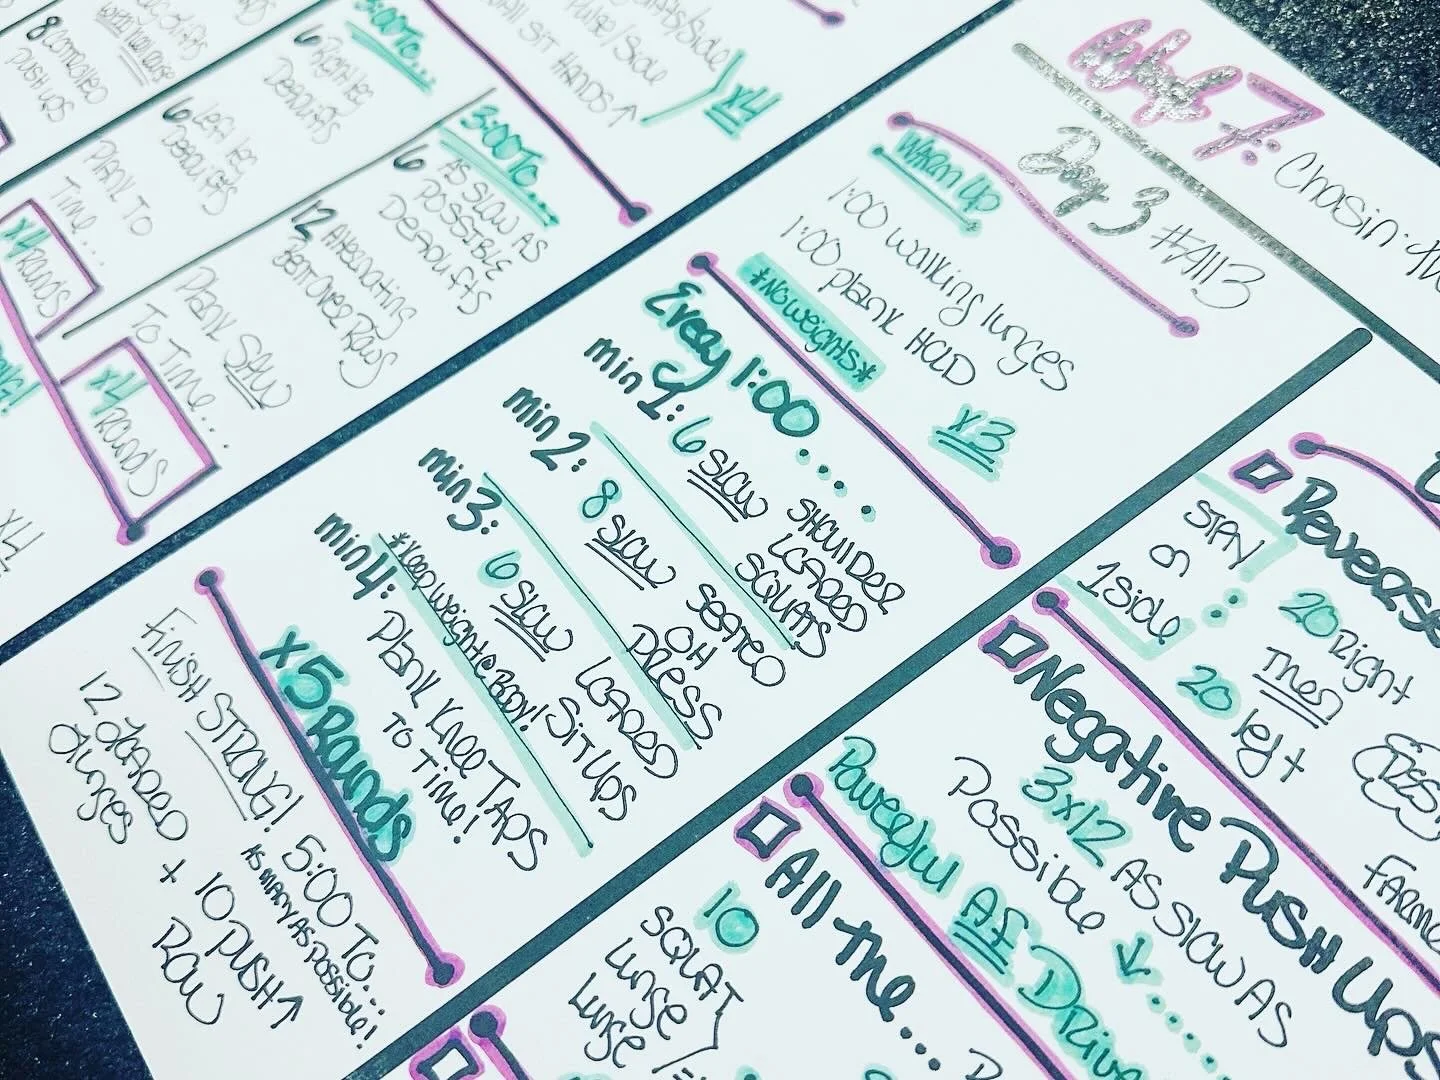 Week 7: Chasin'
Day 3 #All3
Warm Up
1:00 walking lunges
1:00 plank HOLD
*No weights*
x3
Every 1:00....
min 1: 6 SLOW SHOULDER LOADED SQUATS
min 2: 8 SLOW SEATED OH PRESS
min 3: 6 SLOW LOADED SIT UPS
*Keep weight @ BODY!
min 4: Plank Knee TAPS TO TIME!
x5 Rounds
FINISH STRONG! 5:00 TO...
AS MANY AS POSSIBLE!
12 LOADED Lunges + 10 PUSH↑ ROW
8 CONTROLLED PUSH UPS
6 RIGHT LEG DEADLIFTS
6 LEFT LEG DEADLIFTS
PLANK TO TIME...
x4 ROUNDS
3:00 TO...
3:00 TO...
6 AS SLOW AS POSSIBLE DEADLIFTS
12 ALTERNATING BENT OVER ROWS
PLANK SAW TO TIME...
x4 ROUNDS
SIT HANDS↑
x4
x4
Reverse
STAY on 1 side
20 Right
THEN
20 left
FARME
Negative PUSH UPS
3x12 AS SLOW AS Possible
Powerful AF Drive
All the...
10 SQUAT
Lunge
Lunge